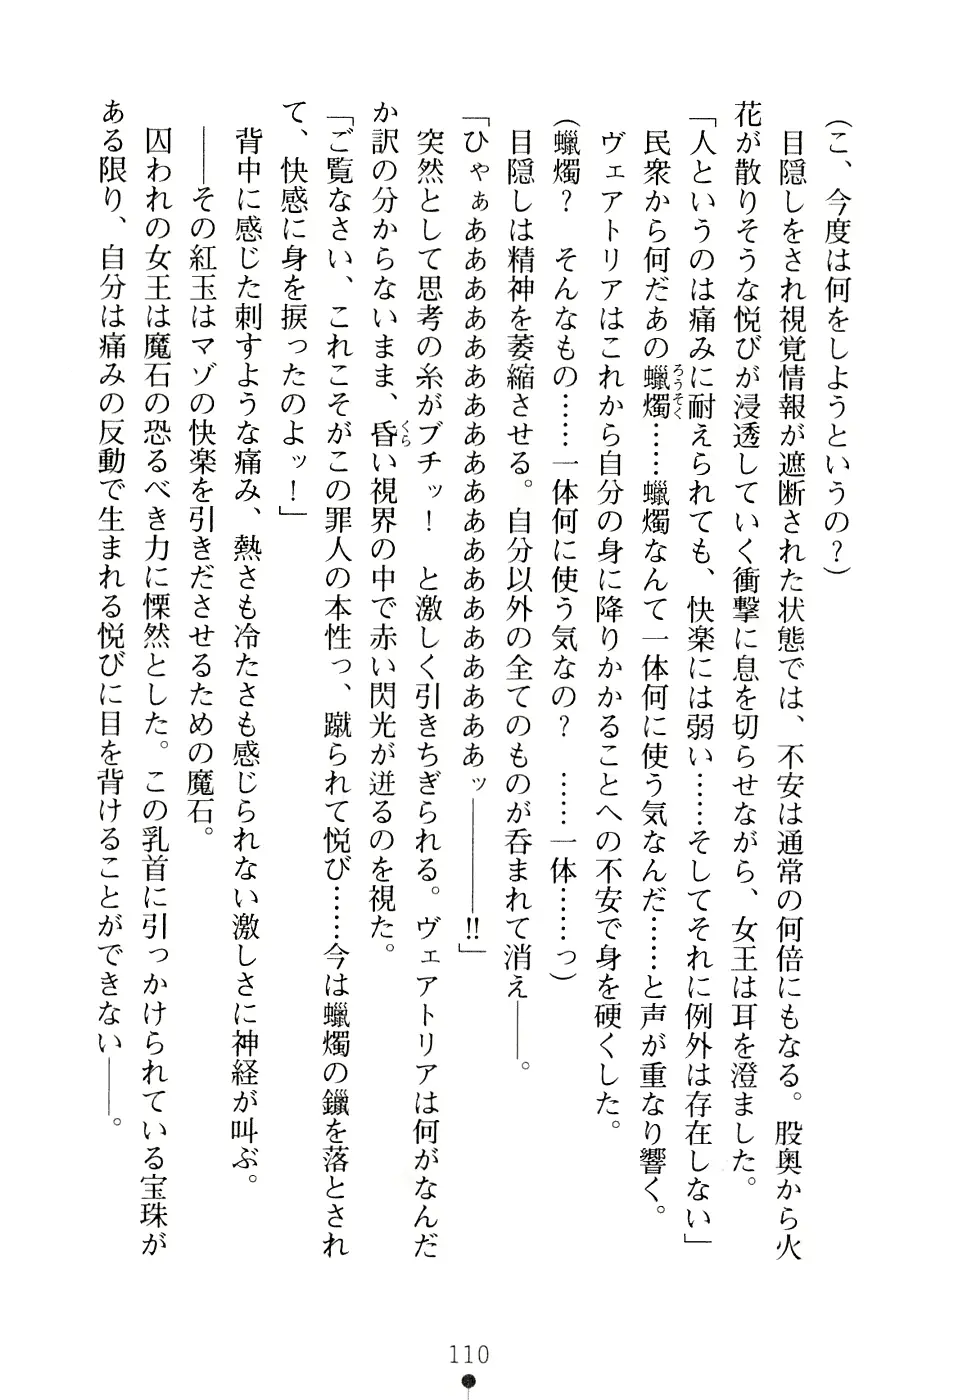 (こ、今度は何をしようというの？)
　目隠しをされ視覚情報が遮断された状態では、不安は通常の何倍にもなる。股奥から火
花が散りそうな悦びが浸透していく衝撃に息を切らせながら、女王は耳を澄ました。
「人というのは痛みに耐えられても、快楽には弱い……そしてそれに例外は存在しない」
　民衆から何だあの蠟燭……蠟燭なんて一体何に使う気なんだ……と声が重なり響く。
ろうそく
　ヴェアトリアはこれから自分の身に降りかかることへの不安で身を硬くした。
(蠟燭？　そんなもの……一体何に使う気なの？　……一体……っ)
　目隠しは精神を萎縮させる。自分以外の全てのものが呑まれて消え――。
「ひゃぁああああああああああああああああああッ――――!!」
　突然として思考の糸がブチッ！　と激しく引きちぎられる。ヴェアトリアは何がなんだ
か訳の分からないまま、昏い視界の中で赤い閃光が迸るのを視た。
くら
「ご覧なさい、これこそがこの罪人の本性っ、蹴られて悦び……今は蠟燭の鑞を落とされ
て、快感に身を捩ったのよッ！」
　背中に感じた刺すような痛み、熱さも冷たさも感じられない激しさに神経が叫ぶ。
　――その紅玉はマゾの快楽を引きださせるための魔石。
　囚われの女王は魔石の恐るべき力に慄然とした。この乳首に引っかけられている宝珠が
ある限り、自分は痛みの反動で生まれる悦びに目を背けることができない――。
110